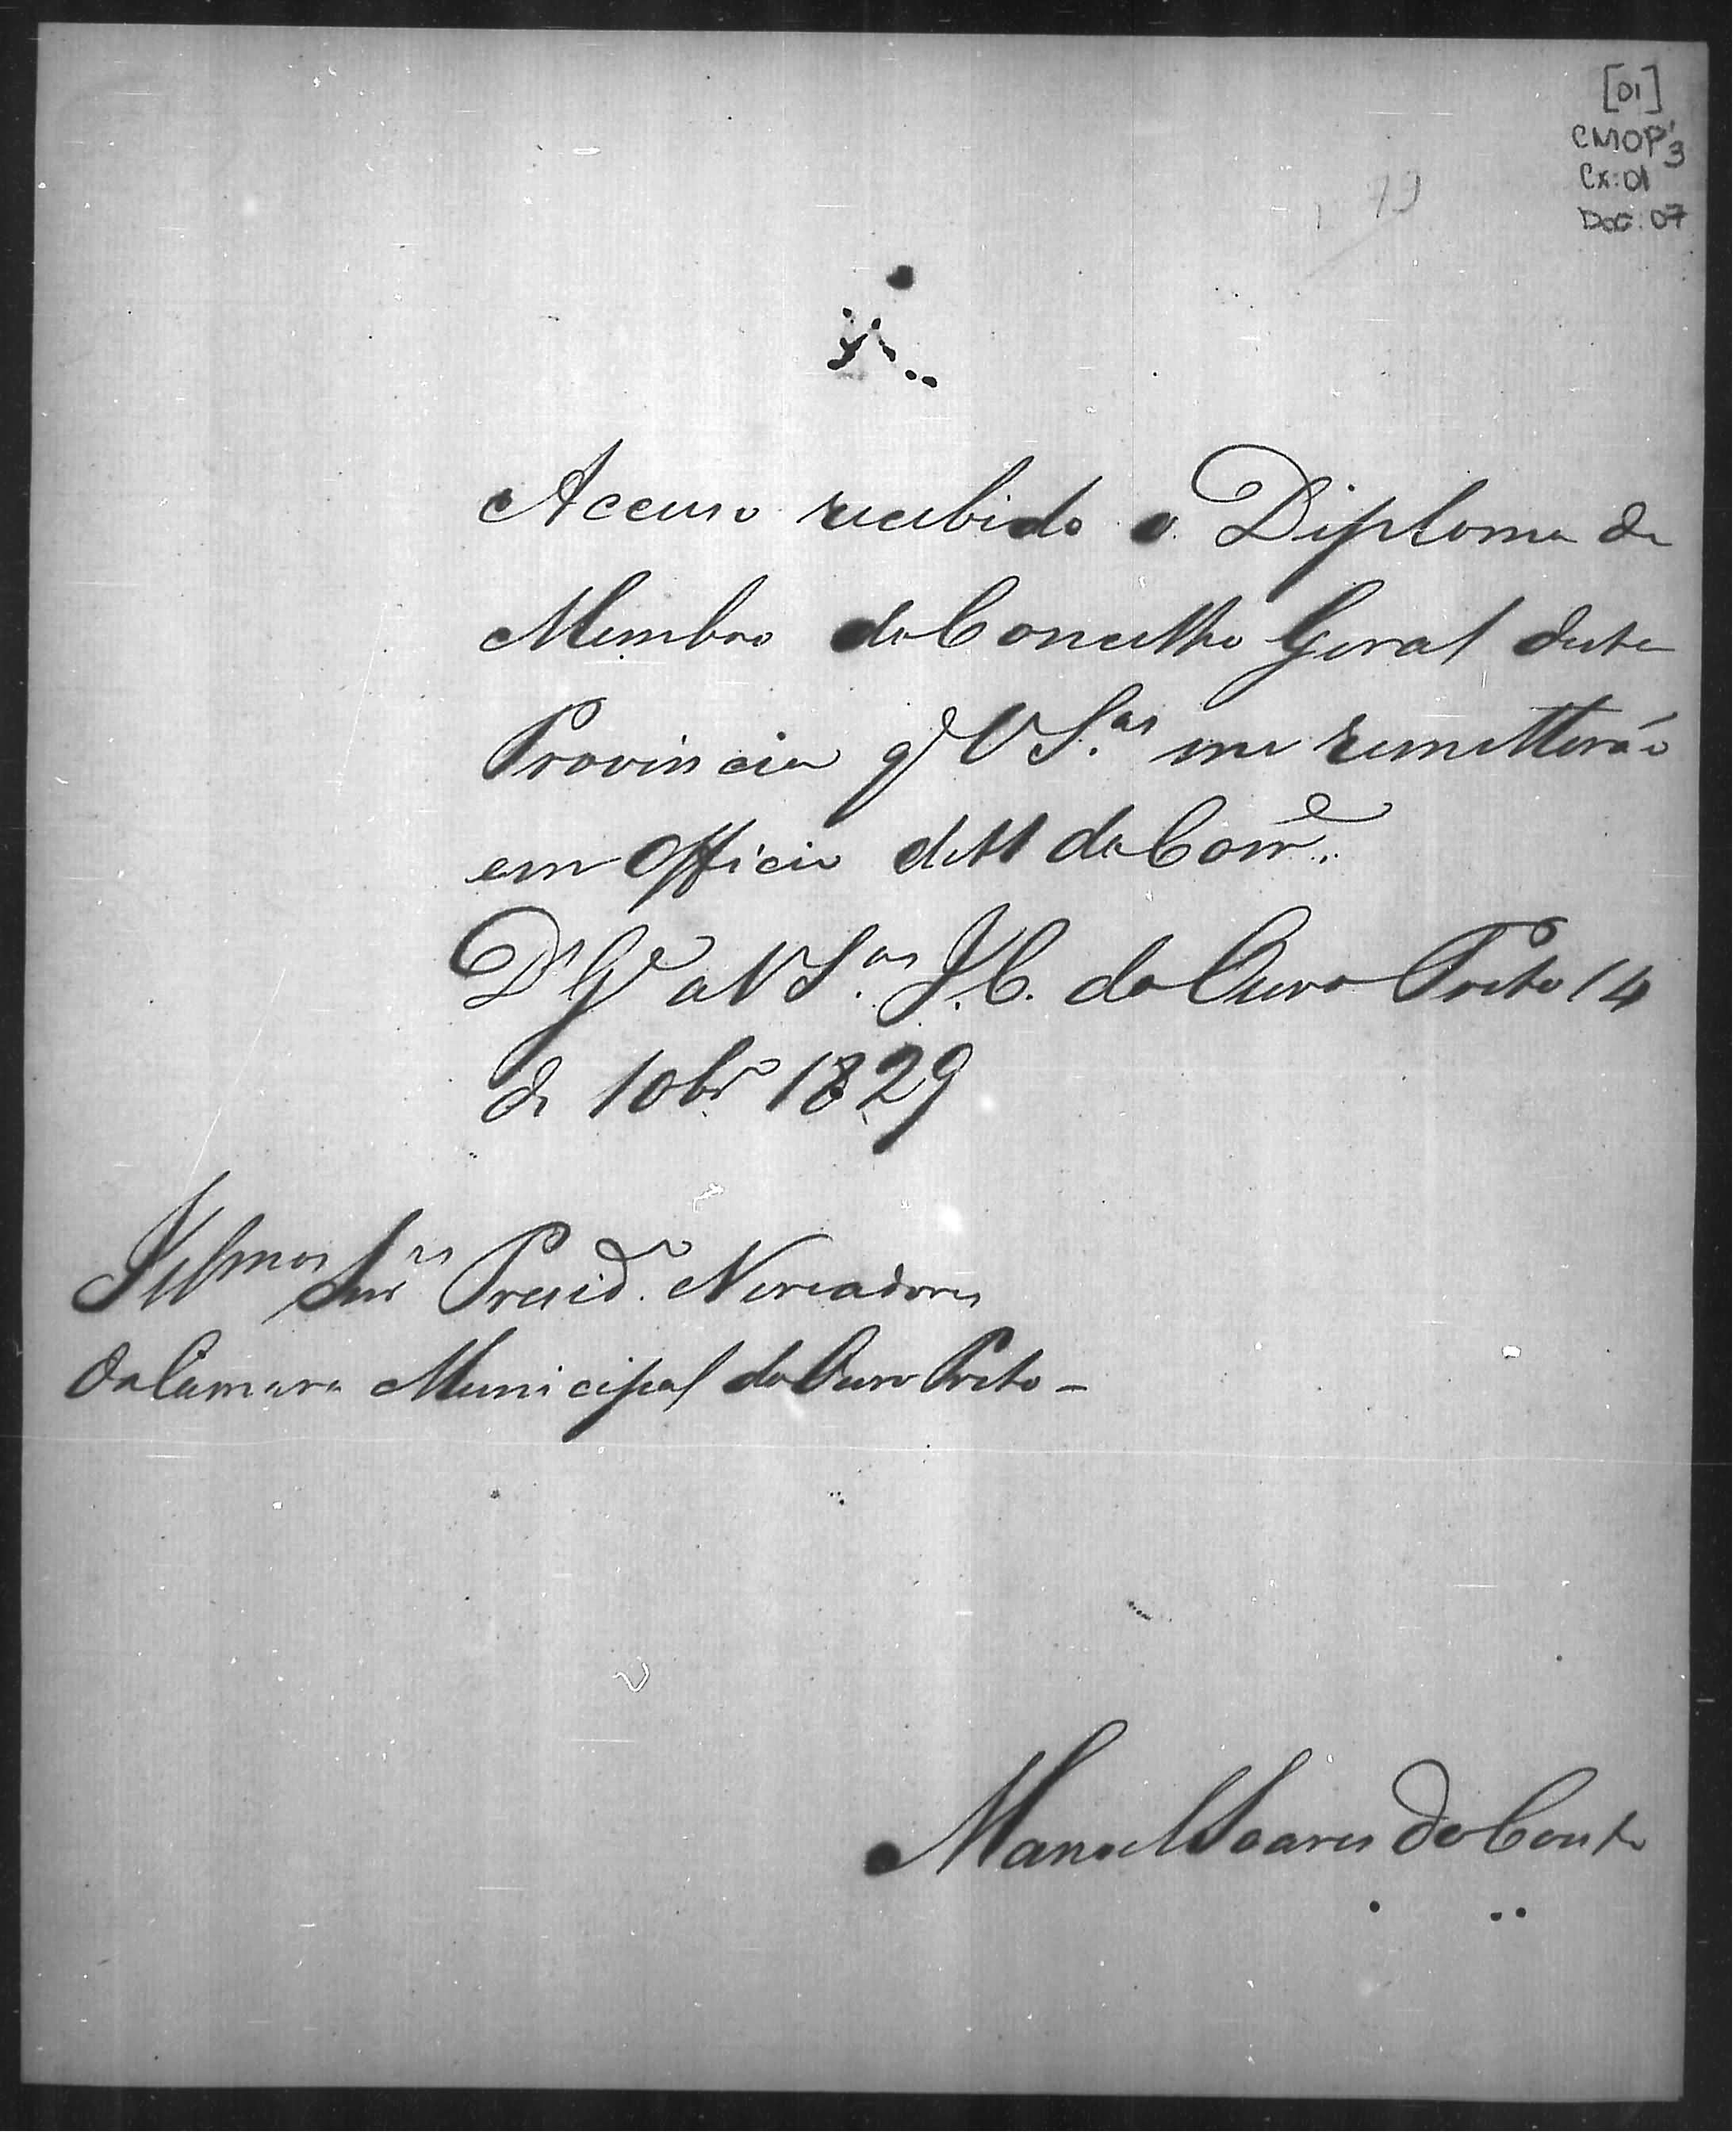 [01]
CMOP3
Cx: 01
Doc: 07
79
Accuso recebido o Diploma de
Membro do Concelho Geral desta
Provincia q̃ V S.as me remetterão
em Officio de 11 do Corr.e
D.s G.e a V S.as I. C. do Ouro Preto 14
de 10br.o 1829
Illmos Snr.es Presid.e Vereadores
da Camara Municipal do Ouro Preto -
Manoel Soares do Couto